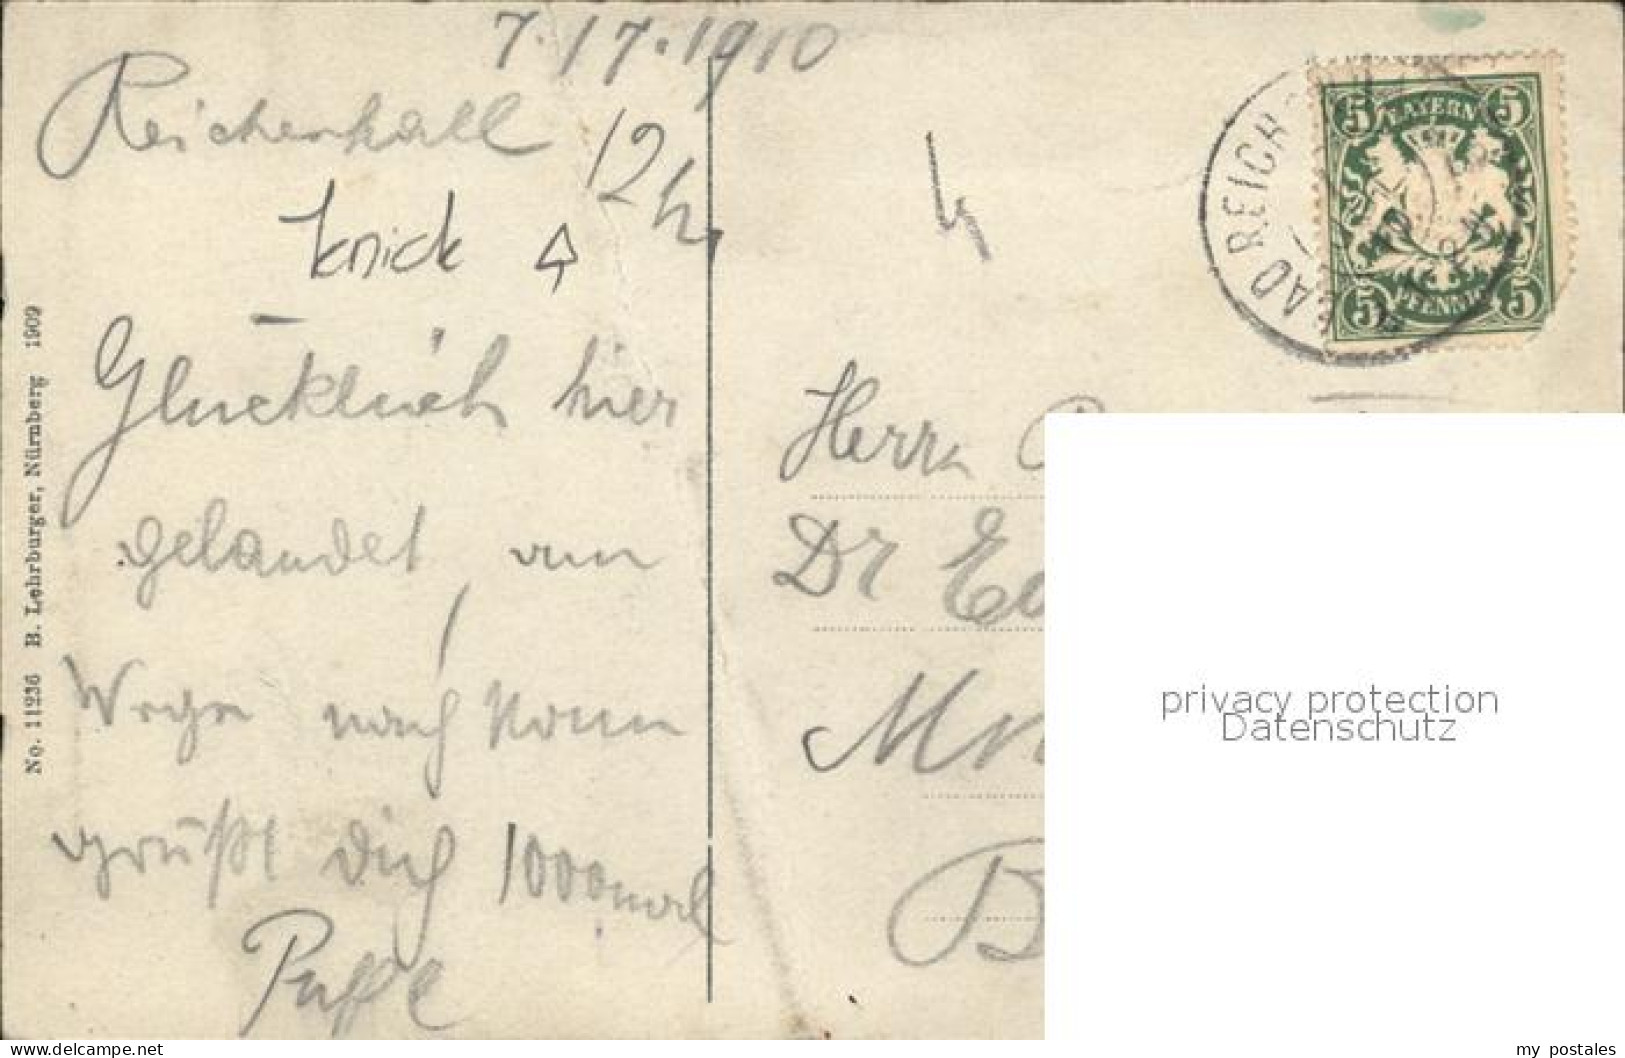 7.17.1910
Reichenhall
12h
knick
Glücklich hier
gelandet, am
Wege nach Nonn
grüßt dich 1000mal
No. 11236 B. Lehrburger, Nürnberg 1909
4
BAD REICH
5 BAYERN 5
5 PFENNIG 5
Herrn
Dr
privacy protection
Datenschutz
www.delcampe.net
my postales